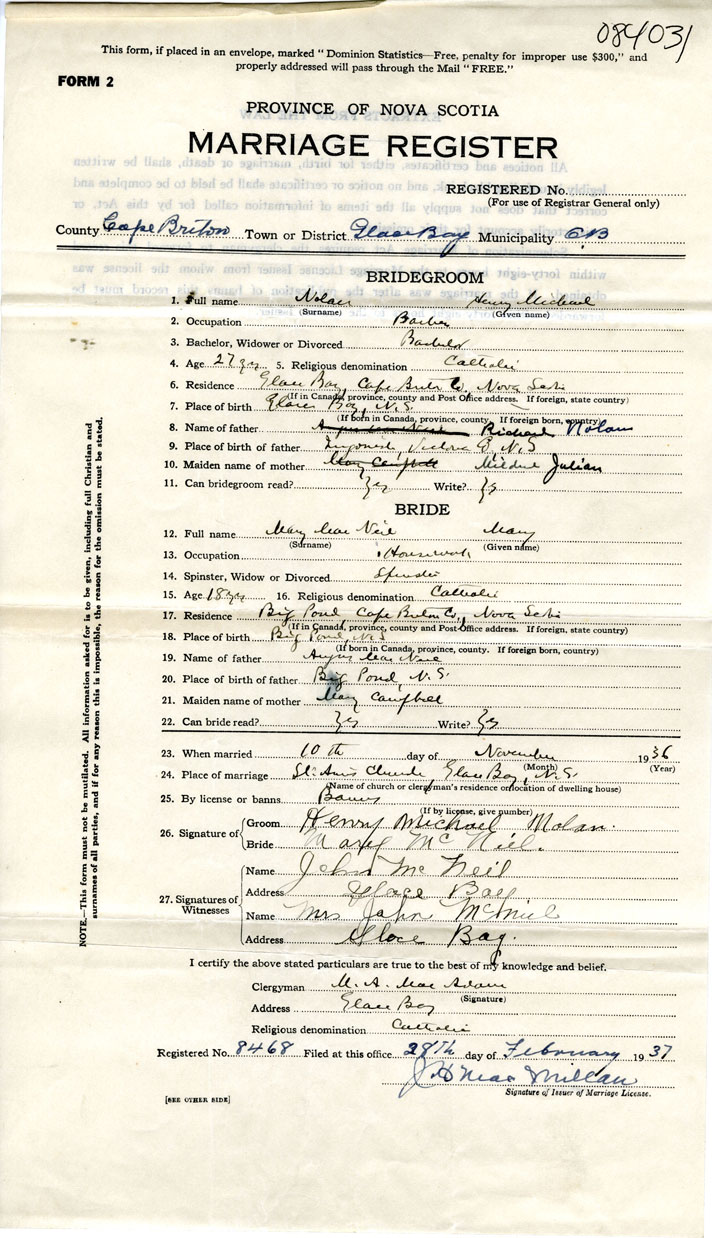 084031
This form, if placed in an envelope, marked "Dominion Statistics—Free, penalty for improper use $300," and
properly addressed will pass through the Mail "FREE."
FORM 2
PROVINCE OF NOVA SCOTIA
MARRIAGE REGISTER
REGISTERED No.
(For use of Registrar General only)
County Cape Briton Town or District Glace Bay Municipality CB
BRIDEGROOM
1. Full name Nolan Henry Micheal
(Surname) (Given name)
2. Occupation Barber
3. Bachelor, Widower or Divorced Bachelor
4. Age 27 yrs 5. Religious denomination Catholic
6. Residence Glace Bay, Cape Breton Co, Nova Scotia
(If in Canada, province, county and Post Office address. If foreign, state country)
7. Place of birth Glace Bay, N.S.
(If born in Canada, province, county. If foreign born, country)
8. Name of father Angus Mac Neil Richard Nolan
9. Place of birth of father Ingonish, Victoria Co, N.S
10. Maiden name of mother Mary Campbell Mildred Julian
11. Can bridegroom read? Yes Write? Yes
BRIDE
12. Full name Mary Mac Neil Mary
(Surname) (Given name)
13. Occupation Housework
14. Spinster, Widow or Divorced Spinster
15. Age 18 yrs 16. Religious denomination Catholic
17. Residence Big Pond Cape Breton Co, Nova Scotia
(If in Canada, province, county and Post Office address. If foreign, state country)
18. Place of birth Big Pond, N.S
(If born in Canada, province, county. If foreign born, country)
19. Name of father Angus Mac Neil
20. Place of birth of father Big Pond, N.S.
21. Maiden name of mother Mary Campbell
22. Can bride read? Yes Write? Yes
23. When married 10 th day of November 1936
(Month) (Year)
24. Place of marriage St. Ann's Church, Glace Bay, N.S.
(Name of church or clergyman's residence or location of dwelling house)
25. By license or banns Banns
(If by license, give number)
26. Signature of Groom Henry Michael Nolan.
Bride Mary Mc Niel.
27. Signatures of Witnesses
Name John Mc Neil
Address Glace Bay
Name Mrs John McNeil
Address Glace Bay.
I certify the above stated particulars are true to the best of my knowledge and belief.
Clergyman M. A. Mac Adam
(Signature)
Address Glace Bay
Religious denomination Catholic
Registered No. 8468 Filed at this office 28th day of February 1937
J. D Mac Millan
Signature of Issuer of Marriage License.
[SEE OTHER SIDE]
NOTE.—This form must not be mutilated. All information asked for is to be given, including full Christian and
surnames of all parties, and if for any reason this is impossible, the reason for the omission must be stated.